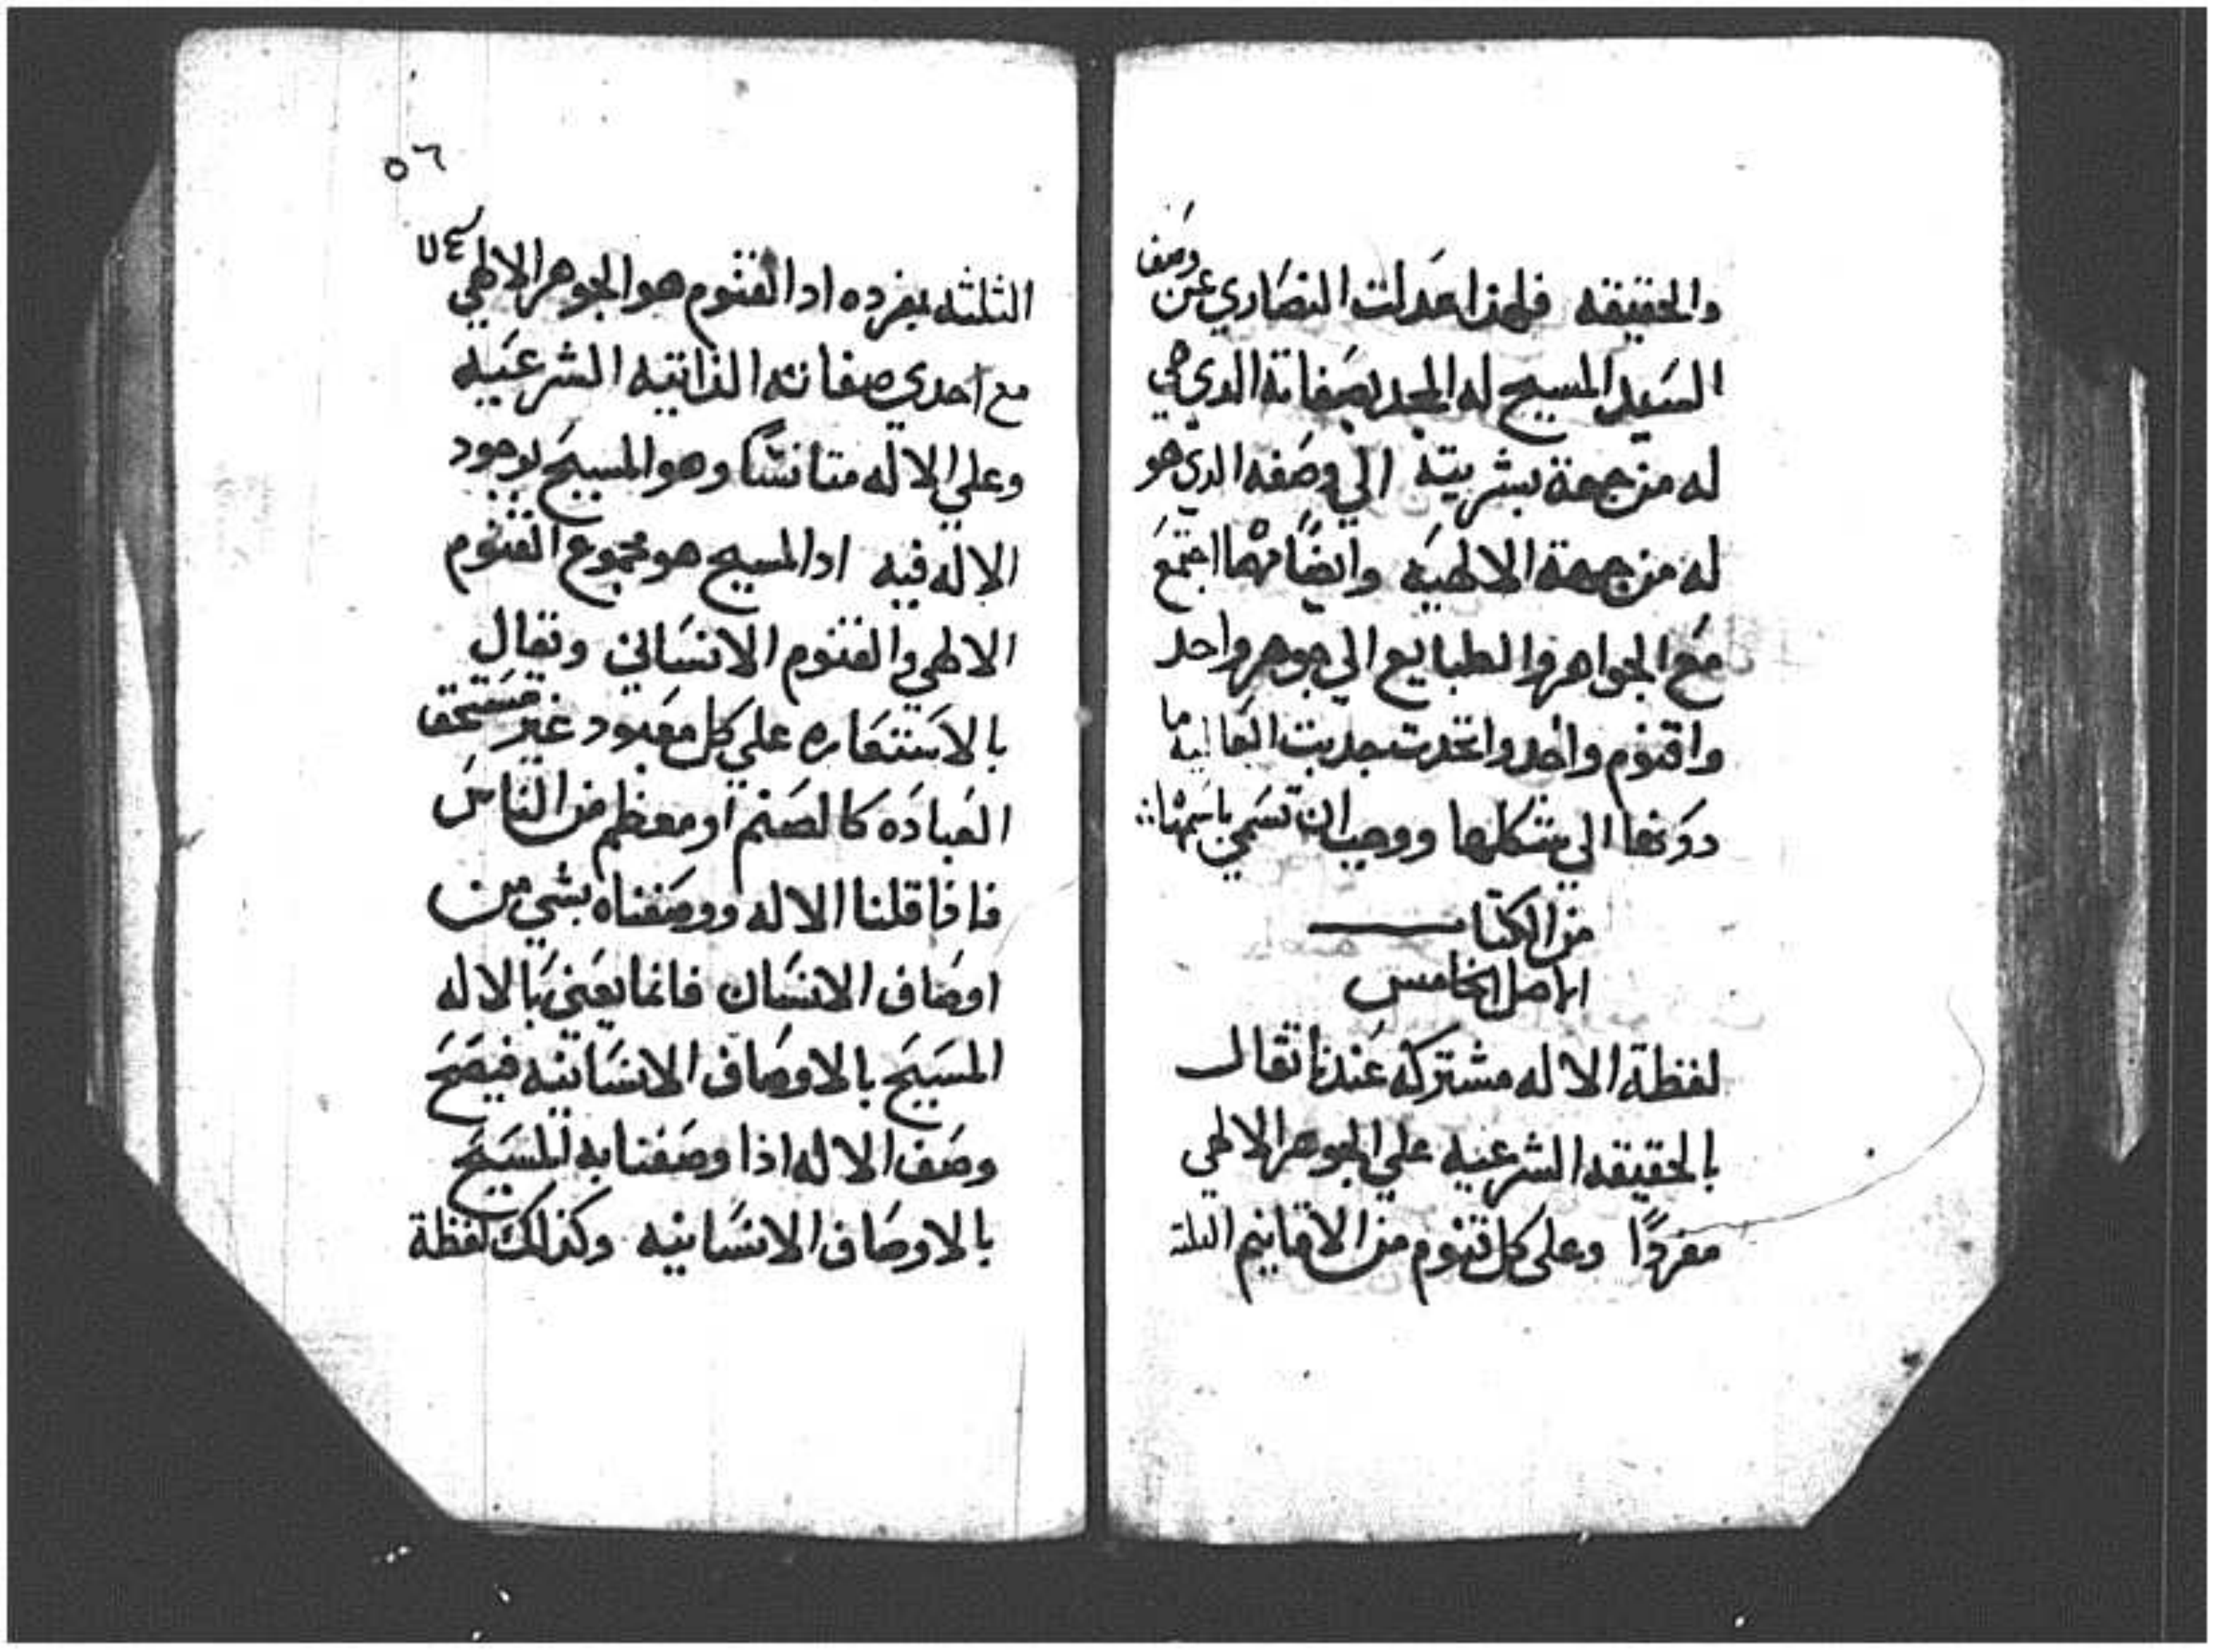 والحقيقه فلهذا عدلت النصاري عن وصف
السيد المسيح له المجد بصفاته الدي هي
له من جهة بشريته الي وصفه الدي هو
له من جهة الالهيه وايضا مهما اجتمع
مع الجواهر والطبايع الي جوهر واحد
واقنوم واحد واتحدت جدبت الغالبه ما
دونها الي شكلها ووجب ان تسمي باسمها
من الكتاب
الاصل الخامس
لفظة الاله مشتركه عندنا تقال
بالحقيقه الشرعيه علي الجوهر الالهي
مفردًا وعلي كل قنوم من الاقانيم الثلثة
٥٦
الثلثه بمفرده اد القنوم هو الجوهر الالهي
مع احدي صفاته الذاتيه الشرعيه
وعلي الاله متانسًا وهو المسيح لوجود
الاله فيه اد المسيح هو مجموع القنوم
الالهي والقنوم الانساني وتقال
بالاستعاره علي كل معبود غير مستحق
العباده كالصنم او معظم من الناس
فاذا قلنا الاله ووصفناه بشي من
اوصاف الانسان فانما يعني بالاله
المسيح بالاوصاف الانسانيه فيصح
وصف الاله اذا وصفنا به المسيح
بالاوصاف الانسانيه وكذلك لفظة